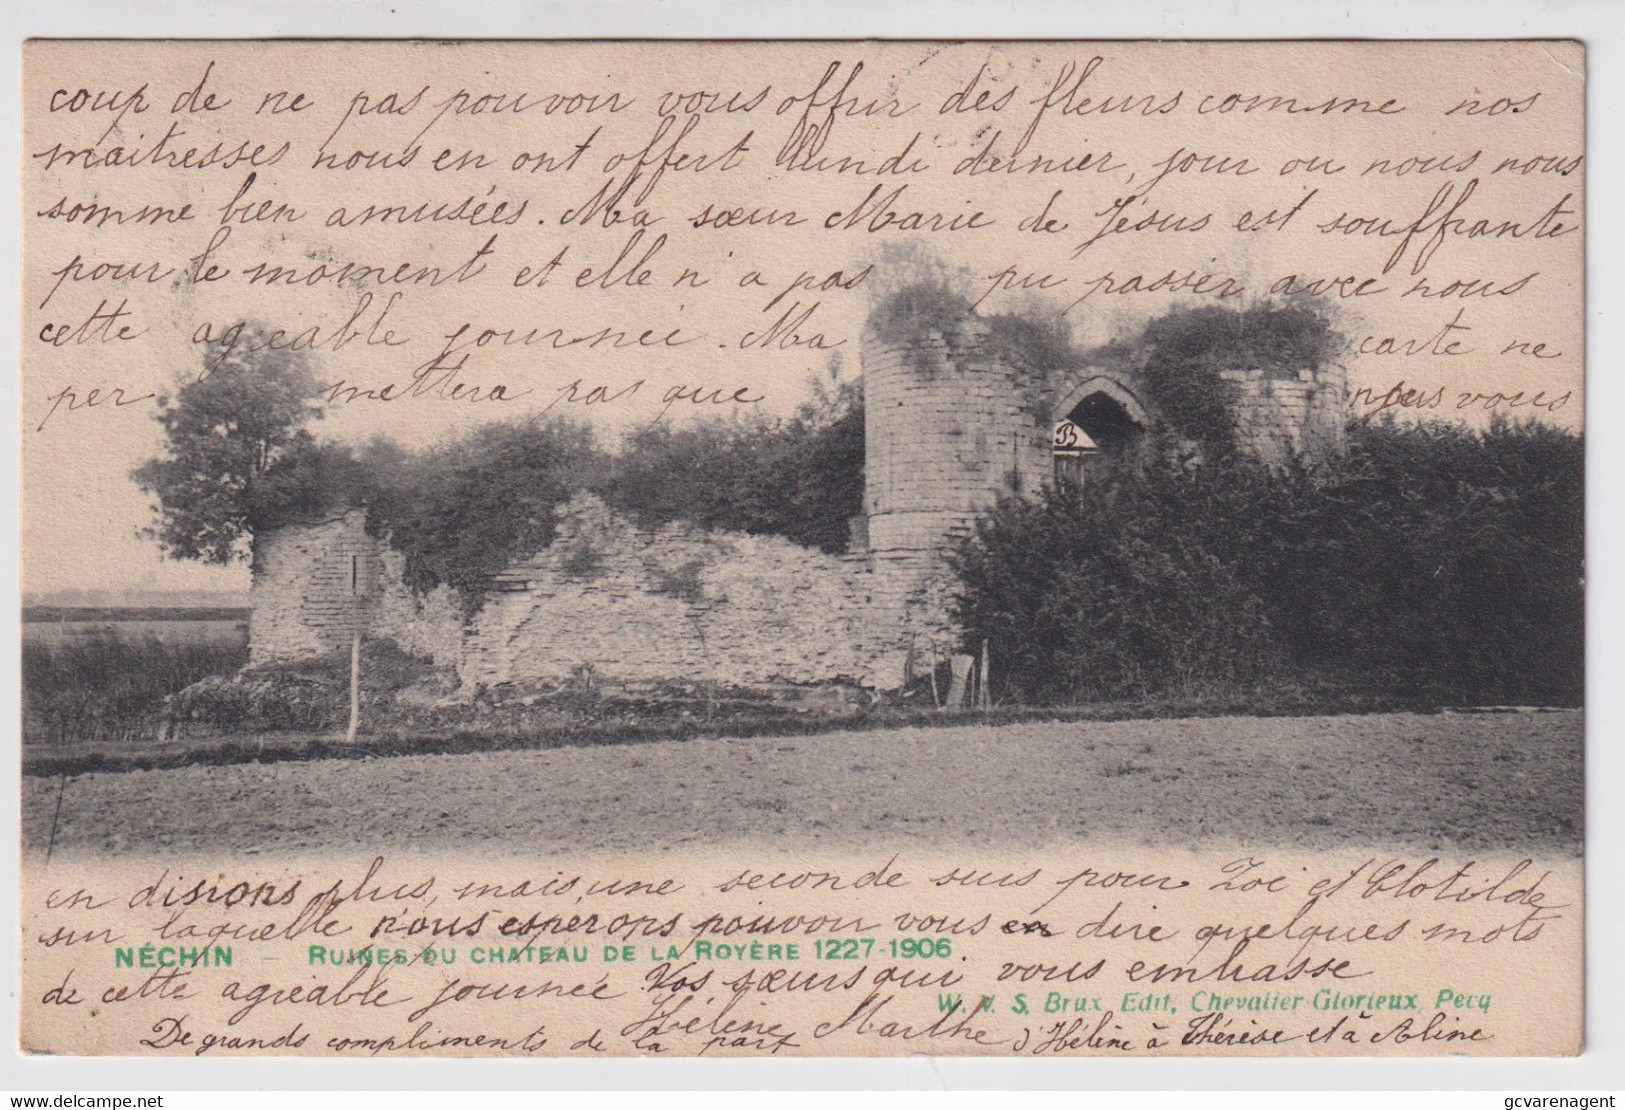 coup de ne pas pouvoir vous offrir des fleurs comme nos
maitresses nous en ont offert lundi dernier, jour ou nous nous
somme bien amusées. Ma sœur Marie de Jésus est souffrante
pour le moment et elle n'a pas pu passer avec nous
cette agréable journée. Ma carte ne
per mettera pas que nous vous
B
en disions plus, mais, une seconde suis pour Zoé et Clotilde
sur laquelle nous esperons pouvoir vous en dire quelques mots
NÉCHIN — RUINES DU CHATEAU DE LA ROYÈRE 1227-1906
de cette agréable journée Vos sœurs qui vous embrasse
W. V. S. Brux. Edit, Chevalier-Glorieux, Pecq
Hélène Marthe
De grands compliments de la part d'Hélène à Thérèse et à Aline
Néchin
gcvarenagent